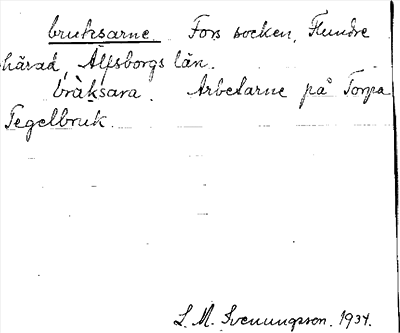 bruksarne. Fors socken, Flundre
härad, Älfsborgs län.
bràksara. Arbetarne på Torpa
Tegelbruk.
L. M. Svenungsson. 1934.